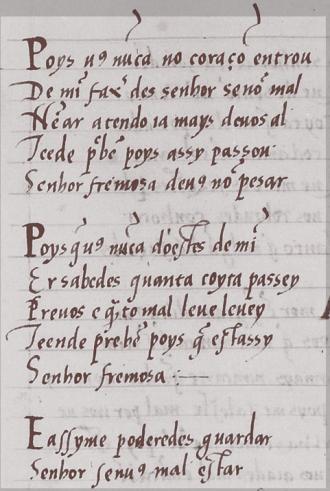 Poys uꝯ nũca no coraçõ entrou
De mĩ fax̃ des senhor senõ mal
Nẽ ar atendo ia mays deuos al
Teede p̃bẽ poys assy passou
Senhor fremosa deuꝯ nõ pesar
Poys q̃ uꝯ nũca doestes de mĩ
Er sabedes quanta coyta passey
Por uos e q̃to mal leue leuey
Teende prebẽ poys q̃ estassy
Senhor fremosa
E assyme poderedes guardar
Senhor senuꝯ mal estar